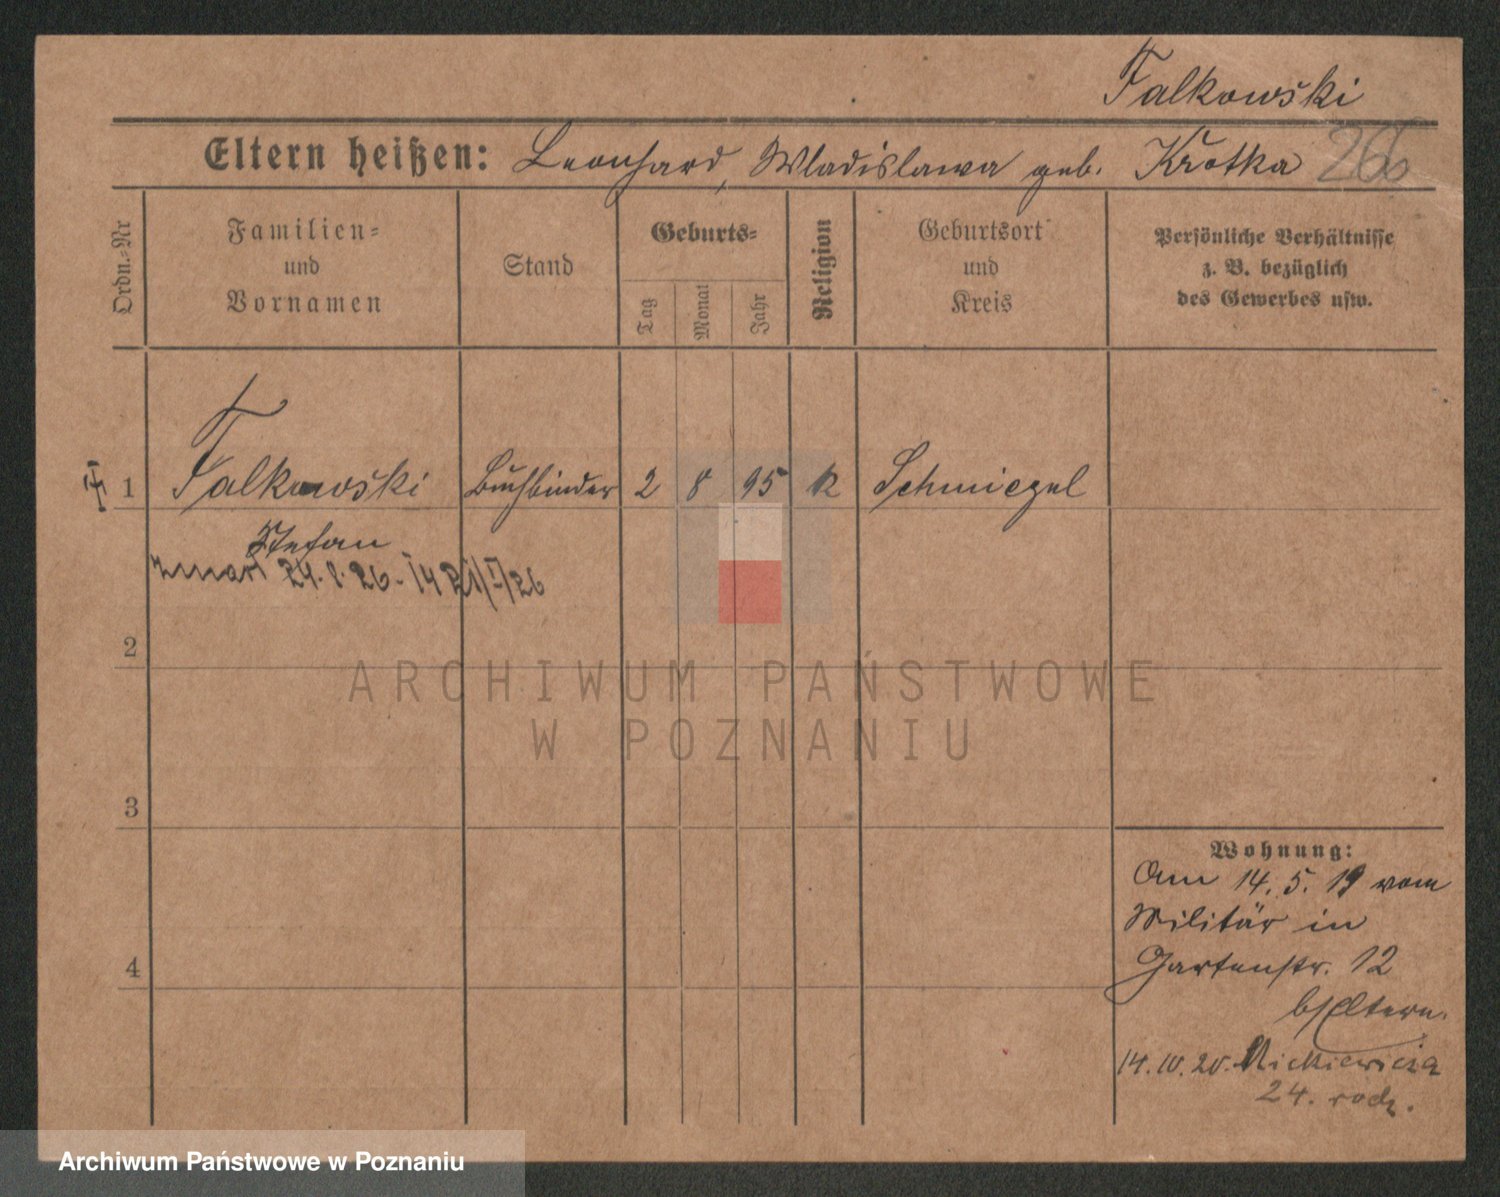 Falkowski
Eltern heißen: Leonhard, Wladislawa geb. Krotka 266
Ordn.-Nr
Familien- und Vornamen
Stand
Geburts-
Tag
Monat
Jahr
Religion
Geburtsort und Kreis
Persönliche Verhältnisse
z. B. bezüglich
des Gewerbes usw.
1 Falkowski Buchbinder 2 8 95 k Schmiegel
Stefan
zmarł 24.8.26
2
3
4
ARCHIWUM PAŃSTWOWE
W POZNANIU
Wohnung:
Am 14. 5. 19 vom
Militär in
Gartenstr. 12
b/Eltern.
14. 10. 20. Mickiewicza
24. rodz.
Archiwum Państwowe w Poznaniu